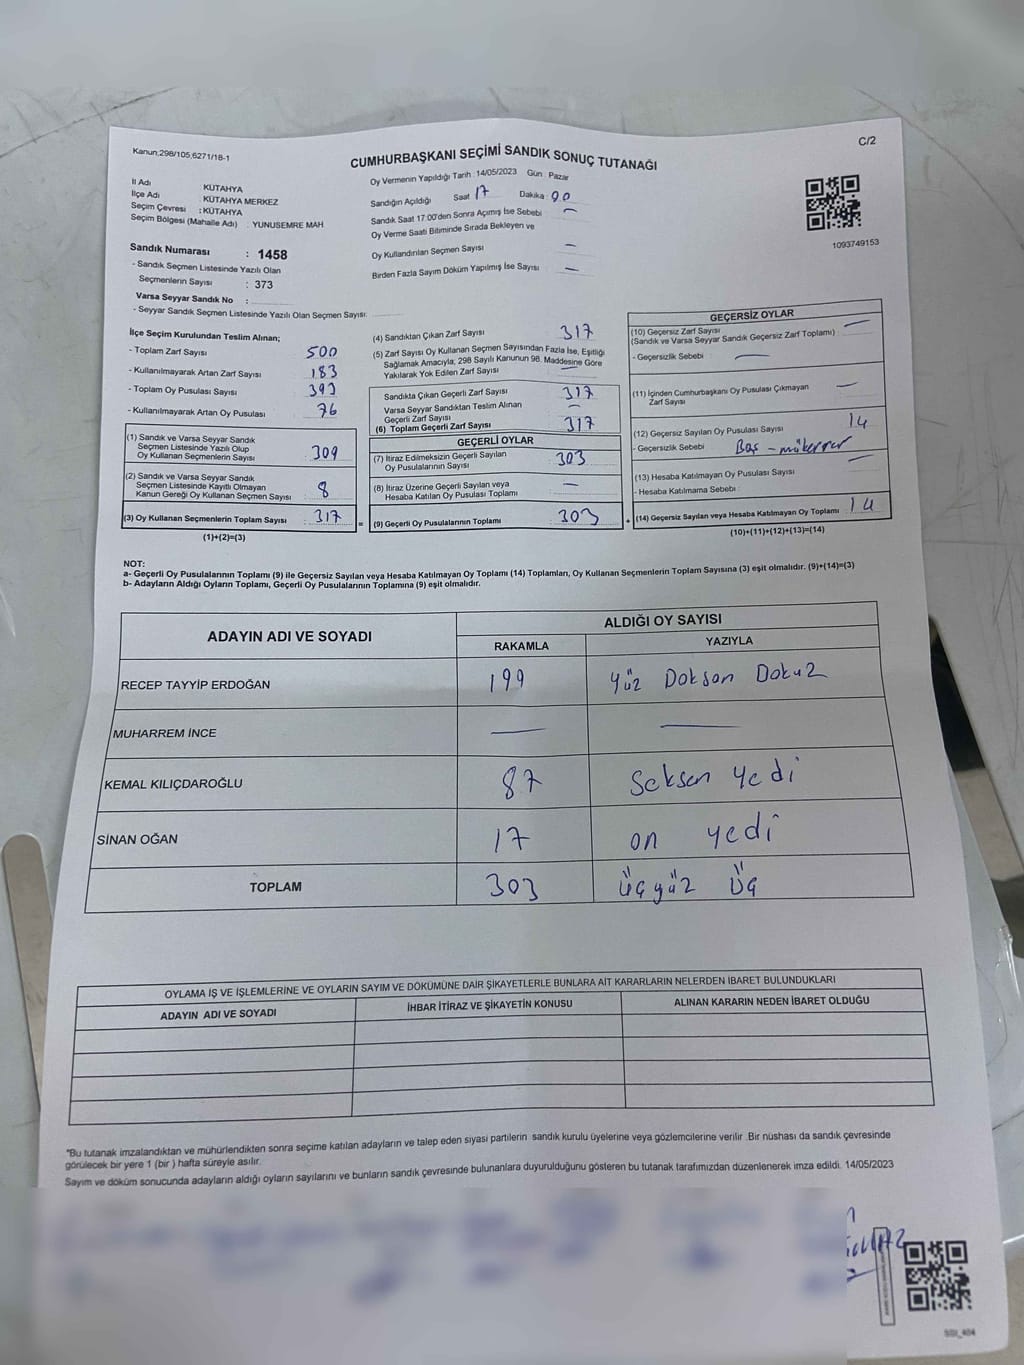 Kanun,298/105,6271/18-1
C/2
CUMHURBAŞKANI SEÇİMİ SANDIK SONUÇ TUTANAĞI
İl Adı KÜTAHYA
İlçe Adı : KÜTAHYA MERKEZ
Seçim Çevresi : KÜTAHYA
Seçim Bölgesi (Mahalle Adı) : YUNUSEMRE MAH
Sandık Numarası : 1458
- Sandık Seçmen Listesinde Yazılı Olan
Seçmenlerin Sayısı : 373
Varsa Seyyar Sandık No :
- Seyyar Sandık Seçmen Listesinde Yazılı Olan Seçmen Sayısı:
Oy Vermenin Yapıldığı Tarih : 14/05/2023 Gün : Pazar
Sandığın Açıldığı Saat 17 Dakika : 00
Sandık Saat 17:00'den Sonra Açımış İse Sebebi —
Oy Verme Saati Bitiminde Sırada Bekleyen ve
Oy Kullandırılan Seçmen Sayısı —
Birden Fazla Sayım Döküm Yapılmış İse Sayısı —
1093749153
İlçe Seçim Kurulundan Teslim Alınan;
- Toplam Zarf Sayısı 500
- Kullanılmayarak Artan Zarf Sayısı 183
- Toplam Oy Pusulası Sayısı 393
- Kullanılmayarak Artan Oy Pusulası 76
(1) Sandık ve Varsa Seyyar Sandık
Seçmen Listesinde Yazılı Olup
Oy Kullanan Seçmenlerin Sayısı 309
(2) Sandık ve Varsa Seyyar Sandık
Seçmen Listesinde Kayıtlı Olmayan
Kanun Gereği Oy Kullanan Seçmen Sayısı 8
(3) Oy Kullanan Seçmenlerin Toplam Sayısı 317 =
(1)+(2)=(3)
(4) Sandıktan Çıkan Zarf Sayısı 317
(5) Zarf Sayısı Oy Kullanan Seçmen Sayısından Fazla İse, Eşitliği
Sağlamak Amacıyla, 298 Sayılı Kanunun 98. Maddesine Göre
Yakılarak Yok Edilen Zarf Sayısı —
Sandıkta Çıkan Geçerli Zarf Sayısı 317
Varsa Seyyar Sandıktan Teslim Alınan
Geçerli Zarf Sayısı —
(6) Toplam Geçerli Zarf Sayısı 317
GEÇERLİ OYLAR
(7) İtiraz Edilmeksizin Geçerli Sayılan
Oy Pusulalarının Sayısı 303
(8) İtiraz Üzerine Geçerli Sayılan veya
Hesaba Katılan Oy Pusulası Toplamı —
(9) Geçerli Oy Pusulalarının Toplamı 303 +
GEÇERSİZ OYLAR
(10) Geçersiz Zarf Sayısı —
(Sandık ve Varsa Seyyar Sandık Geçersiz Zarf Toplamı)
- Geçersizlik Sebebi —
(11) İçinden Cumhurbaşkanı Oy Pusulası Çıkmayan
Zarf Sayısı —
(12) Geçersiz Sayılan Oy Pusulası Sayısı 14
- Geçersizlik Sebebi Boş - mükerrer
(13) Hesaba Katılmayan Oy Pusulası Sayısı —
- Hesaba Katılmama Sebebi
(14) Geçersiz Sayılan veya Hesaba Katılmayan Oy Toplamı 14
(10)+(11)+(12)+(13)=(14)
NOT:
a- Geçerli Oy Pusulalarının Toplamı (9) ile Geçersiz Sayılan veya Hesaba Katılmayan Oy Toplamı (14) Toplamları, Oy Kullanan Seçmenlerin Toplam Sayısına (3) eşit olmalıdır. (9)+(14)=(3)
b- Adayların Aldığı Oyların Toplamı, Geçerli Oy Pusulalarının Toplamına (9) eşit olmalıdır.
ADAYIN ADI VE SOYADI ALDIĞI OY SAYISI
RAKAMLA YAZIYLA
RECEP TAYYİP ERDOĞAN 199 Yüz Doksan Dokuz
MUHARREM İNCE — —
KEMAL KILIÇDAROĞLU 87 Seksen Yedi
SİNAN OĞAN 17 on yedi
TOPLAM 303 Üçyüz Üç
OYLAMA İŞ VE İŞLEMLERİNE VE OYLARIN SAYIM VE DÖKÜMÜNE DAİR ŞİKAYETLERLE BUNLARA AİT KARARLARIN NELERDEN İBARET BULUNDUKLARI
ADAYIN ADI VE SOYADI İHBAR İTİRAZ VE ŞİKAYETİN KONUSU ALINAN KARARIN NEDEN İBARET OLDUĞU
"Bu tutanak imzalandıktan ve mühürlendikten sonra seçime katılan adayların ve talep eden siyasi partilerin sandık kurulu üyelerine veya gözlemcilerine verilir .Bir nüshası da sandık çevresinde
görülecek bir yere 1 (bir ) hafta süreyle asılır.
Sayım ve döküm sonucunda adayların aldığı oyların sayılarını ve bunların sandık çevresinde bulunanlara duyurulduğunu gösteren bu tutanak tarafımızdan düzenlenerek imza edildi. 14/05/2023